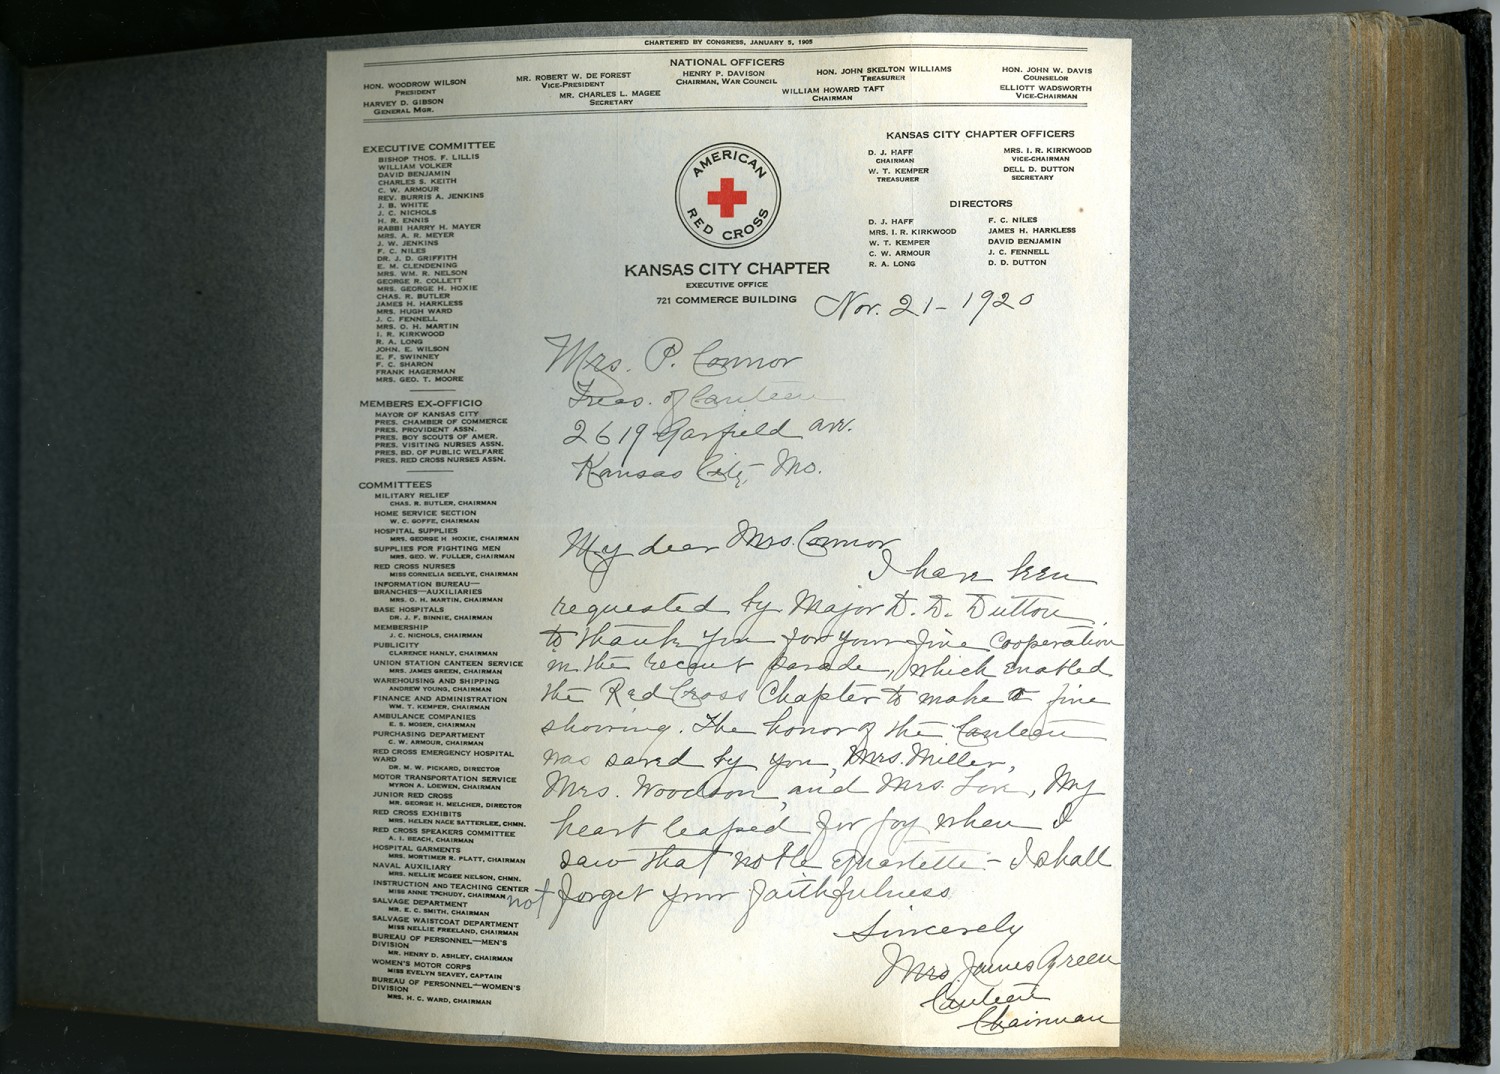 CHARTERED BY CONGRESS, JANUARY 5, 1905
NATIONAL OFFICERS
HON. WOODROW WILSON
PRESIDENT
HARVEY D. GIBSON
GENERAL MGR.
MR. ROBERT W. DE FOREST
VICE-PRESIDENT
MR. CHARLES L. MAGEE
SECRETARY
HENRY P. DAVISON
CHAIRMAN, WAR COUNCIL
HON. JOHN SKELTON WILLIAMS
TREASURER
WILLIAM HOWARD TAFT
CHAIRMAN
HON. JOHN W. DAVIS
COUNSELOR
ELLIOTT WADSWORTH
VICE-CHAIRMAN
EXECUTIVE COMMITTEE
BISHOP THOS. F. LILLIS
WILLIAM VOLKER
DAVID BENJAMIN
CHARLES S. KEITH
C. W. ARMOUR
REV. BURRIS A. JENKINS
J. B. WHITE
J. C. NICHOLS
H. R. ENNIS
RABBI HARRY H. MAYER
MRS. A. R. MEYER
J. W. JENKINS
F. C. NILES
DR. J. D. GRIFFITH
E. M. CLENDENING
MRS. WM. R. NELSON
GEORGE R. COLLETT
MRS. GEORGE H. HOXIE
CHAS. R. BUTLER
JAMES H. HARKLESS
MRS. HUGH WARD
J. C. FENNELL
MRS. O. H. MARTIN
I. R. KIRKWOOD
R. A. LONG
JOHN. E. WILSON
E. F. SWINNEY
F. C. SHARON
FRANK HAGERMAN
MRS. GEO. T. MOORE
MEMBERS EX-OFFICIO
MAYOR OF KANSAS CITY
PRES. CHAMBER OF COMMERCE
PRES. PROVIDENT ASSN.
PRES. BOY SCOUTS OF AMER.
PRES. VISITING NURSES ASSN.
PRES. BD. OF PUBLIC WELFARE
PRES. RED CROSS NURSES ASSN.
COMMITTEES
MILITARY RELIEF
CHAS. R. BUTLER, CHAIRMAN
HOME SERVICE SECTION
W. C. GOFFE, CHAIRMAN
HOSPITAL SUPPLIES
MRS. GEORGE H HOXIE, CHAIRMAN
SUPPLIES FOR FIGHTING MEN
MRS. GEO. W. FULLER, CHAIRMAN
RED CROSS NURSES
MISS CORNELIA SEELYE, CHAIRMAN
INFORMATION BUREAU—
BRANCHES—AUXILIARIES
MRS. O. H. MARTIN, CHAIRMAN
BASE HOSPITALS
DR. J. F. BINNIE, CHAIRMAN
MEMBERSHIP
J. C. NICHOLS, CHAIRMAN
PUBLICITY
CLARENCE HANLY, CHAIRMAN
UNION STATION CANTEEN SERVICE
MRS. JAMES GREEN, CHAIRMAN
WAREHOUSING AND SHIPPING
ANDREW YOUNG, CHAIRMAN
FINANCE AND ADMINISTRATION
WM. T. KEMPER, CHAIRMAN
AMBULANCE COMPANIES
E. S. MOSER, CHAIRMAN
PURCHASING DEPARTMENT
C. W. ARMOUR, CHAIRMAN
RED CROSS EMERGENCY HOSPITAL
WARD
DR. M. W. PICKARD, DIRECTOR
MOTOR TRANSPORTATION SERVICE
MYRON A. LOEWEN, CHAIRMAN
JUNIOR RED CROSS
MR. GEORGE H. MELCHER, DIRECTOR
RED CROSS EXHIBITS
MRS. HELEN NACE SATTERLEE, CHMN.
RED CROSS SPEAKERS COMMITTEE
A. I. BEACH, CHAIRMAN
HOSPITAL GARMENTS
MRS. MORTIMER R. PLATT, CHAIRMAN
NAVAL AUXILIARY
MRS. NELLIE MCGEE NELSON, CHMN.
INSTRUCTION AND TEACHING CENTER
MISS ANNE TSCHUDY, CHAIRMAN
SALVAGE DEPARTMENT
MR. E. C. SMITH, CHAIRMAN
SALVAGE WAISTCOAT DEPARTMENT
MISS NELLIE FREELAND, CHAIRMAN
BUREAU OF PERSONNEL—MEN'S
DIVISION
MR. HENRY D. ASHLEY, CHAIRMAN
WOMEN'S MOTOR CORPS
MISS EVELYN SEAVEY, CAPTAIN
BUREAU OF PERSONNEL—WOMEN'S
DIVISION
MRS. H. C. WARD, CHAIRMAN
AMERICAN
RED CROSS
KANSAS CITY CHAPTER
EXECUTIVE OFFICE
721 COMMERCE BUILDING
KANSAS CITY CHAPTER OFFICERS
D. J. HAFF
CHAIRMAN
W. T. KEMPER
TREASURER
MRS. I. R. KIRKWOOD
VICE-CHAIRMAN
DELL D. DUTTON
SECRETARY
DIRECTORS
D. J. HAFF
MRS. I. R. KIRKWOOD
W. T. KEMPER
C. W. ARMOUR
R. A. LONG
F. C. NILES
JAMES H. HARKLESS
DAVID BENJAMIN
J. C. FENNELL
D. D. DUTTON
Nov. 21 - 1920
Mrs. P. Connor
Treas. of Canteen
2619 Garfield ave.
Kansas City, Mo.
My dear Mrs. Connor
I have been
requested by Major D. D. Dutton
to thank you for your fine cooperation
in the recent parade, which enabled
the Red Cross Chapter to make a fine
showing. The honor of the Canteen
was saved by you, Mrs. Miller,
Mrs. Woodson, and Mrs. My
heart leaped for joy when I
saw that noble quartette - I shall
not forget your faithfulness
Sincerely
Mrs. James Green
Canteen
Chairman